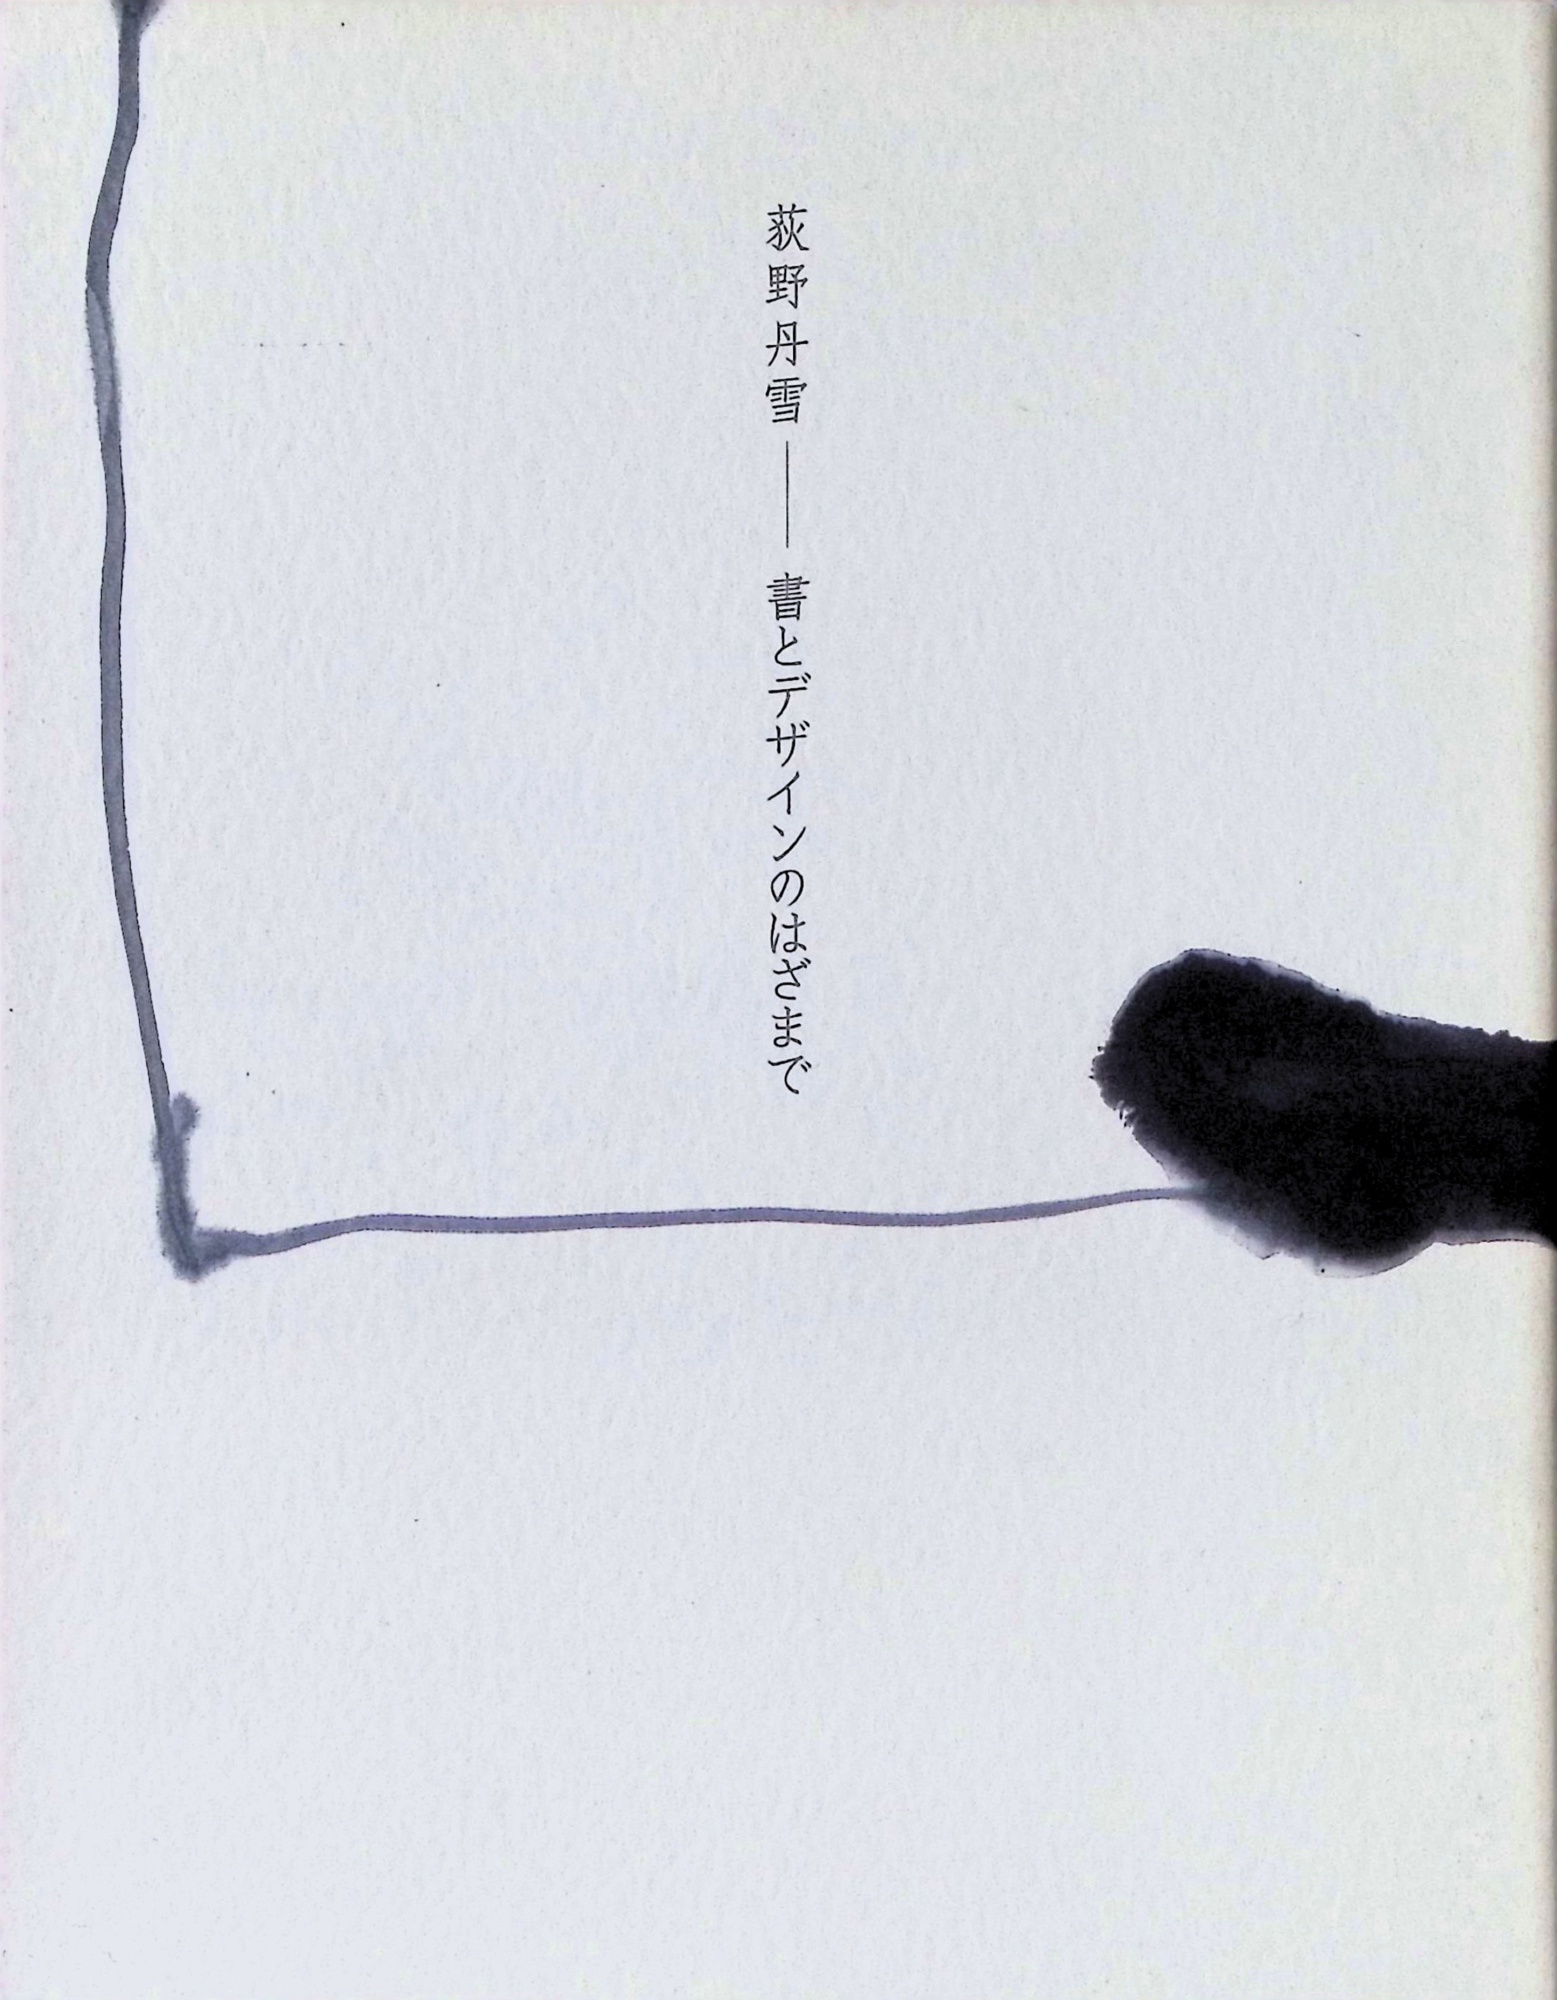 荻野丹雪――書とデザインのはざまで